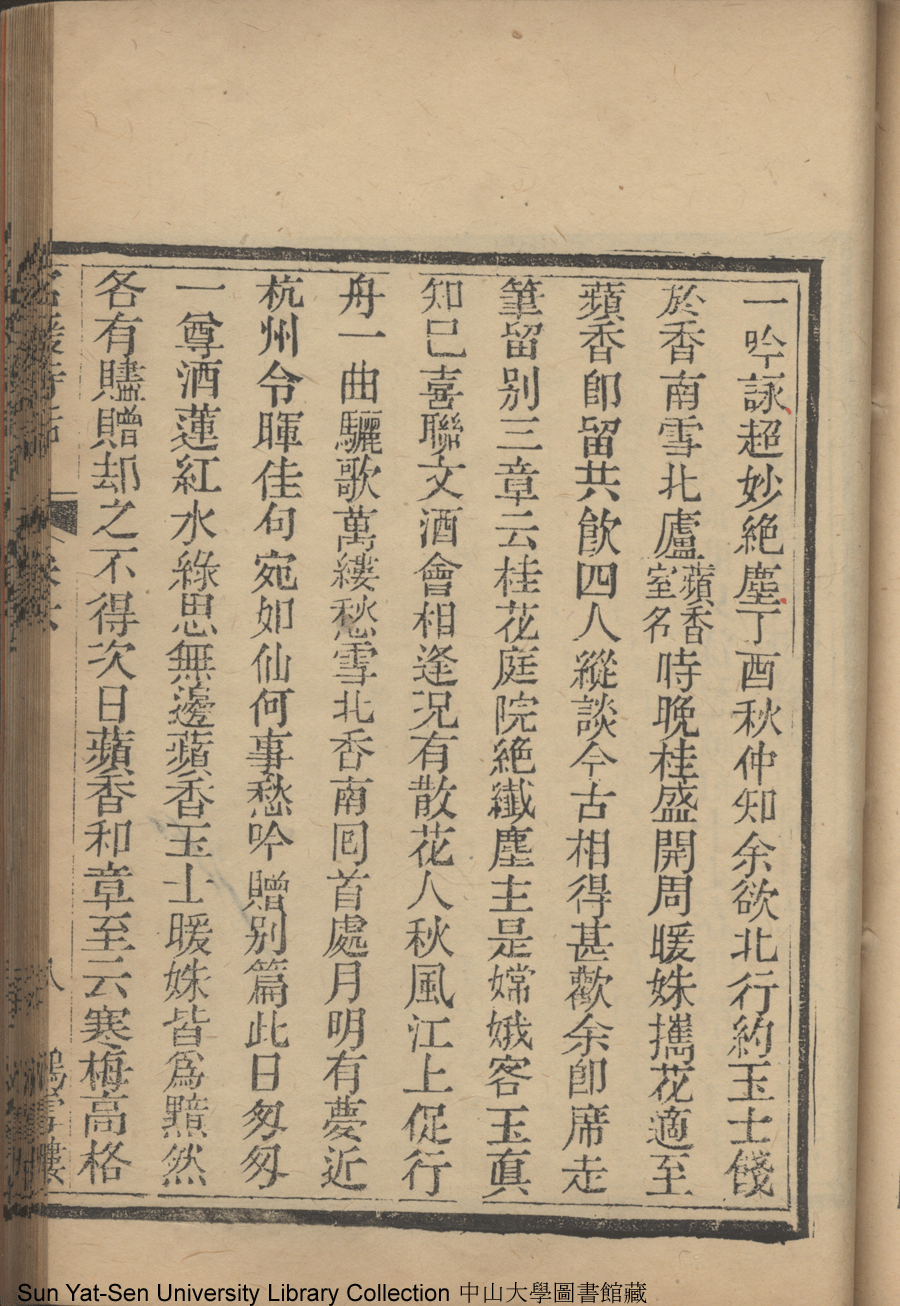 一吟詠超妙絶塵丁酉秋仲知余欲北行約玉士餞
於香南雪北廬蘋香室名時晚桂盛開周暖姝攜花適至
蘋香卽留共飮四人縱談今古相得甚歡余卽席走
筆留别三章云桂花庭院絶纖塵主是嫦娥客玉眞
知已喜聯文酒會相逢况有散花人秋風江上促行
舟一曲驪歌萬縷愁雪北香南囘首處月明有夢近
杭州令暉佳句宛如仙何事愁吟贈别篇此日匆匆
一尊酒蓮紅水綠思無邊蘋香玉士暖姝皆爲黯然
各有贐贈却之不得次日蘋香和章至云寒梅高格
名媛詩話
卷六
八
Sun Yat-Sen University Library Collection 中山大學圖書館藏